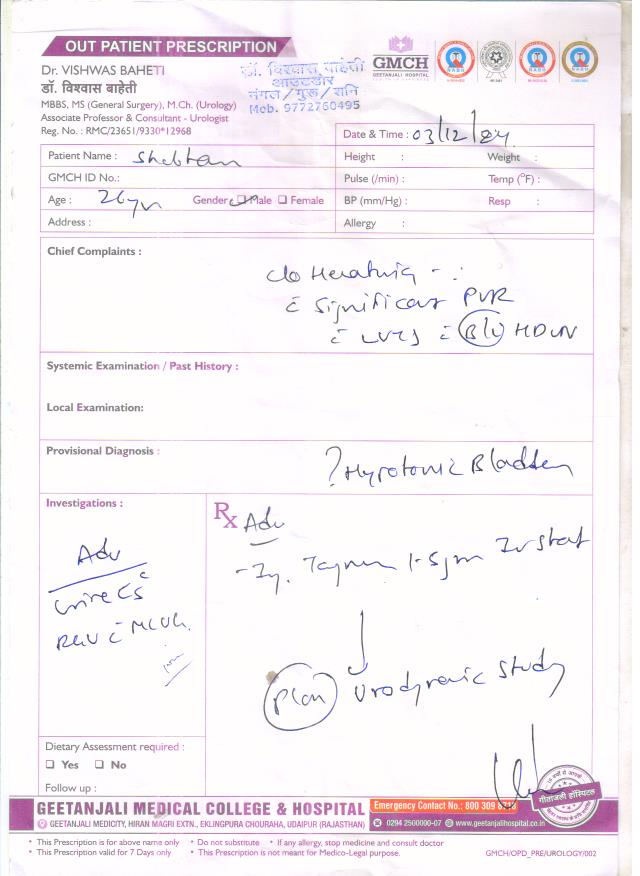 OUT PATIENT PRESCRIPTION
Dr. VISHWAS BAHETI
डॉ. विश्वास बाहेती
MBBS, MS (General Surgery), M.Ch. (Urology)
Associate Professor & Consultant - Urologist
Reg. No. : RMC/23651/9330*12968
डॉ. विश्वास बाहेती
आउटडोर
मंगल/गुरू/शनि
Mob. 9772760495
GMCH
GEETANJALI HOSPITAL
Date & Time : 03/12/24
Patient Name :
Height : Weight :
GMCH ID No.:
Pulse (/min) : Temp (°F) :
Age : 26yr Gender : Male Female
BP (mm/Hg) : Resp :
Address :
Allergy :
Chief Complaints :
c/o
c̄ Significant PVR
c̄ LUTS c̄ B/L HDUN
Systemic Examination / Past History :
Local Examination:
Provisional Diagnosis :
? Hypotonic Bladder
Investigations :
Rx Adv
Adv
Urine CS
RGU c̄ MCUG
- Inj. 1.5gm IV stat
Plan Urodynamic Study
Dietary Assessment required :
Yes No
Follow up :
गीतांजली हॉस्पिटल
GEETANJALI MEDICAL COLLEGE & HOSPITAL
Emergency Contact No.: 800 309
GEETANJALI MEDICITY, HIRAN MAGRI EXTN., EKLINGPURA CHOURAHA, UDAIPUR (RAJASTHAN)
0294 2500000-07 www.geetanjalihospital.co.in
• This Prescription is for above name only • Do not substitute • If any allergy, stop medicine and consult doctor
• This Prescription valid for 7 Days only • This Prescription is not meant for Medico-Legal purpose.
GMCH/OPD_PRE/UROLOGY/002